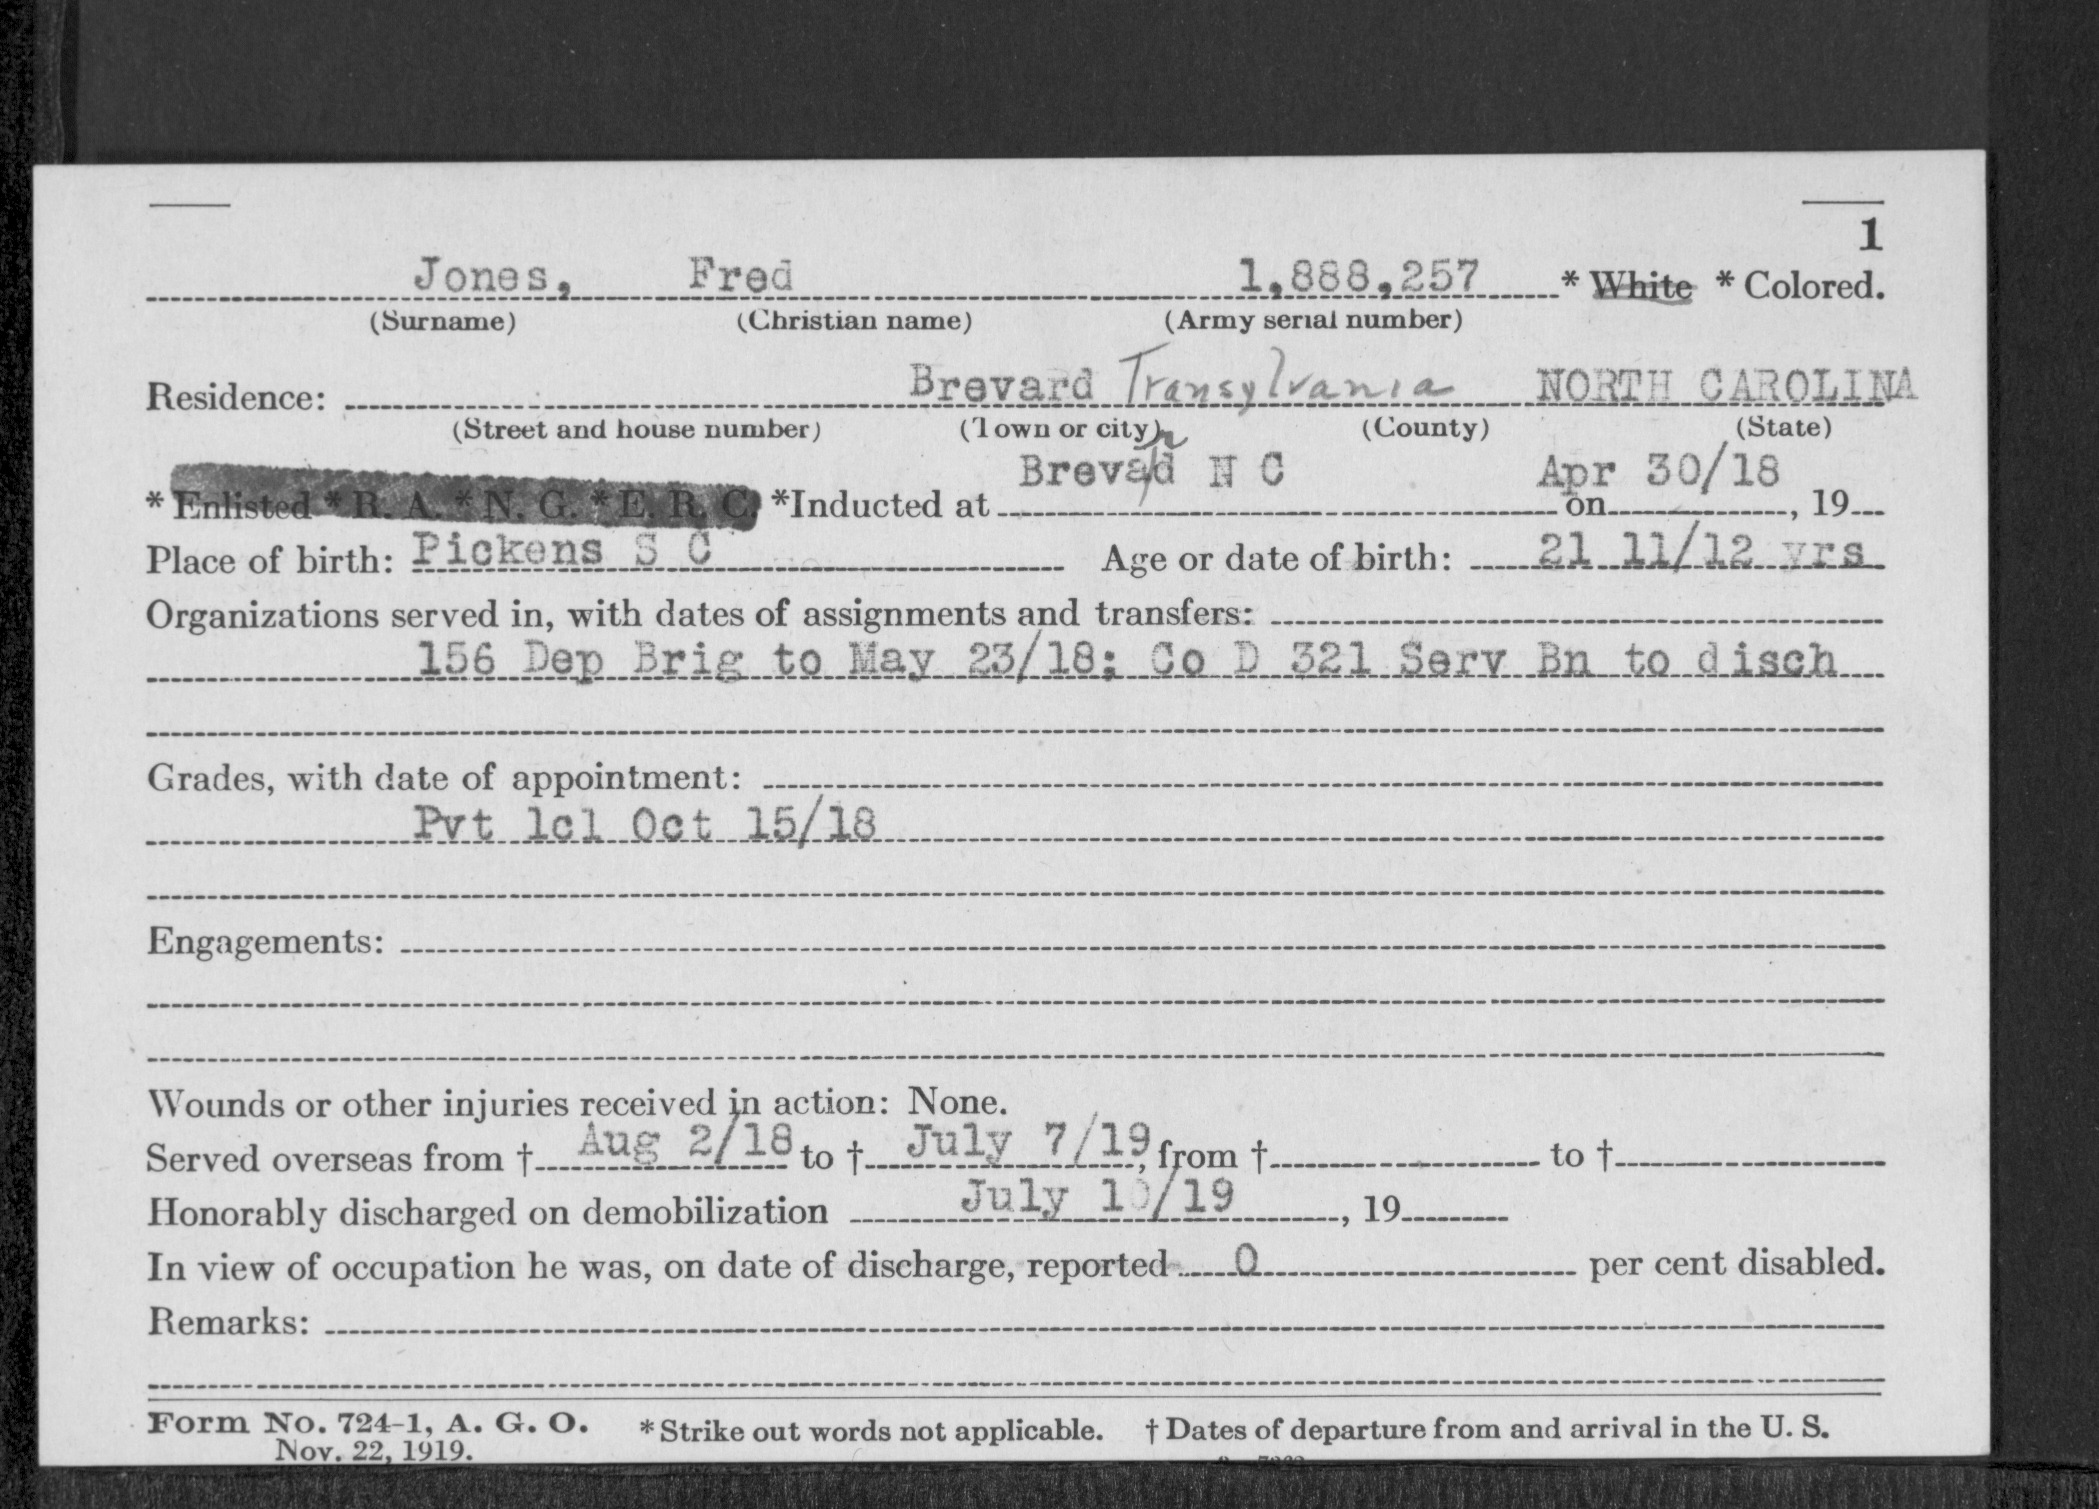 1
Jones, Fred 1,888,257 * White * Colored.
(Surname) (Christian name) (Army serial number)
Residence: Brevard Transylvania NORTH CAROLINA
(Street and house number) (Town or city) (County) (State)
* Enlisted * R. A. * N. G. * E. R. C. *Inducted at Brevard N C on Apr 30/18, 19
Place of birth: Pickens S C Age or date of birth: 21 11/12 yrs
Organizations served in, with dates of assignments and transfers:
156 Dep Brig to May 23/18; Co D 321 Serv Bn to disch
Grades, with date of appointment:
Pvt 1cl Oct 15/18
Engagements:
Wounds or other injuries received in action: None.
Served overseas from † Aug 2/18 to † July 7/19, from † to †
Honorably discharged on demobilization July 10/19, 19
In view of occupation he was, on date of discharge, reported 0 per cent disabled.
Remarks:
Form No. 724-1, A. G. O. * Strike out words not applicable. † Dates of departure from and arrival in the U. S.
Nov. 22, 1919.